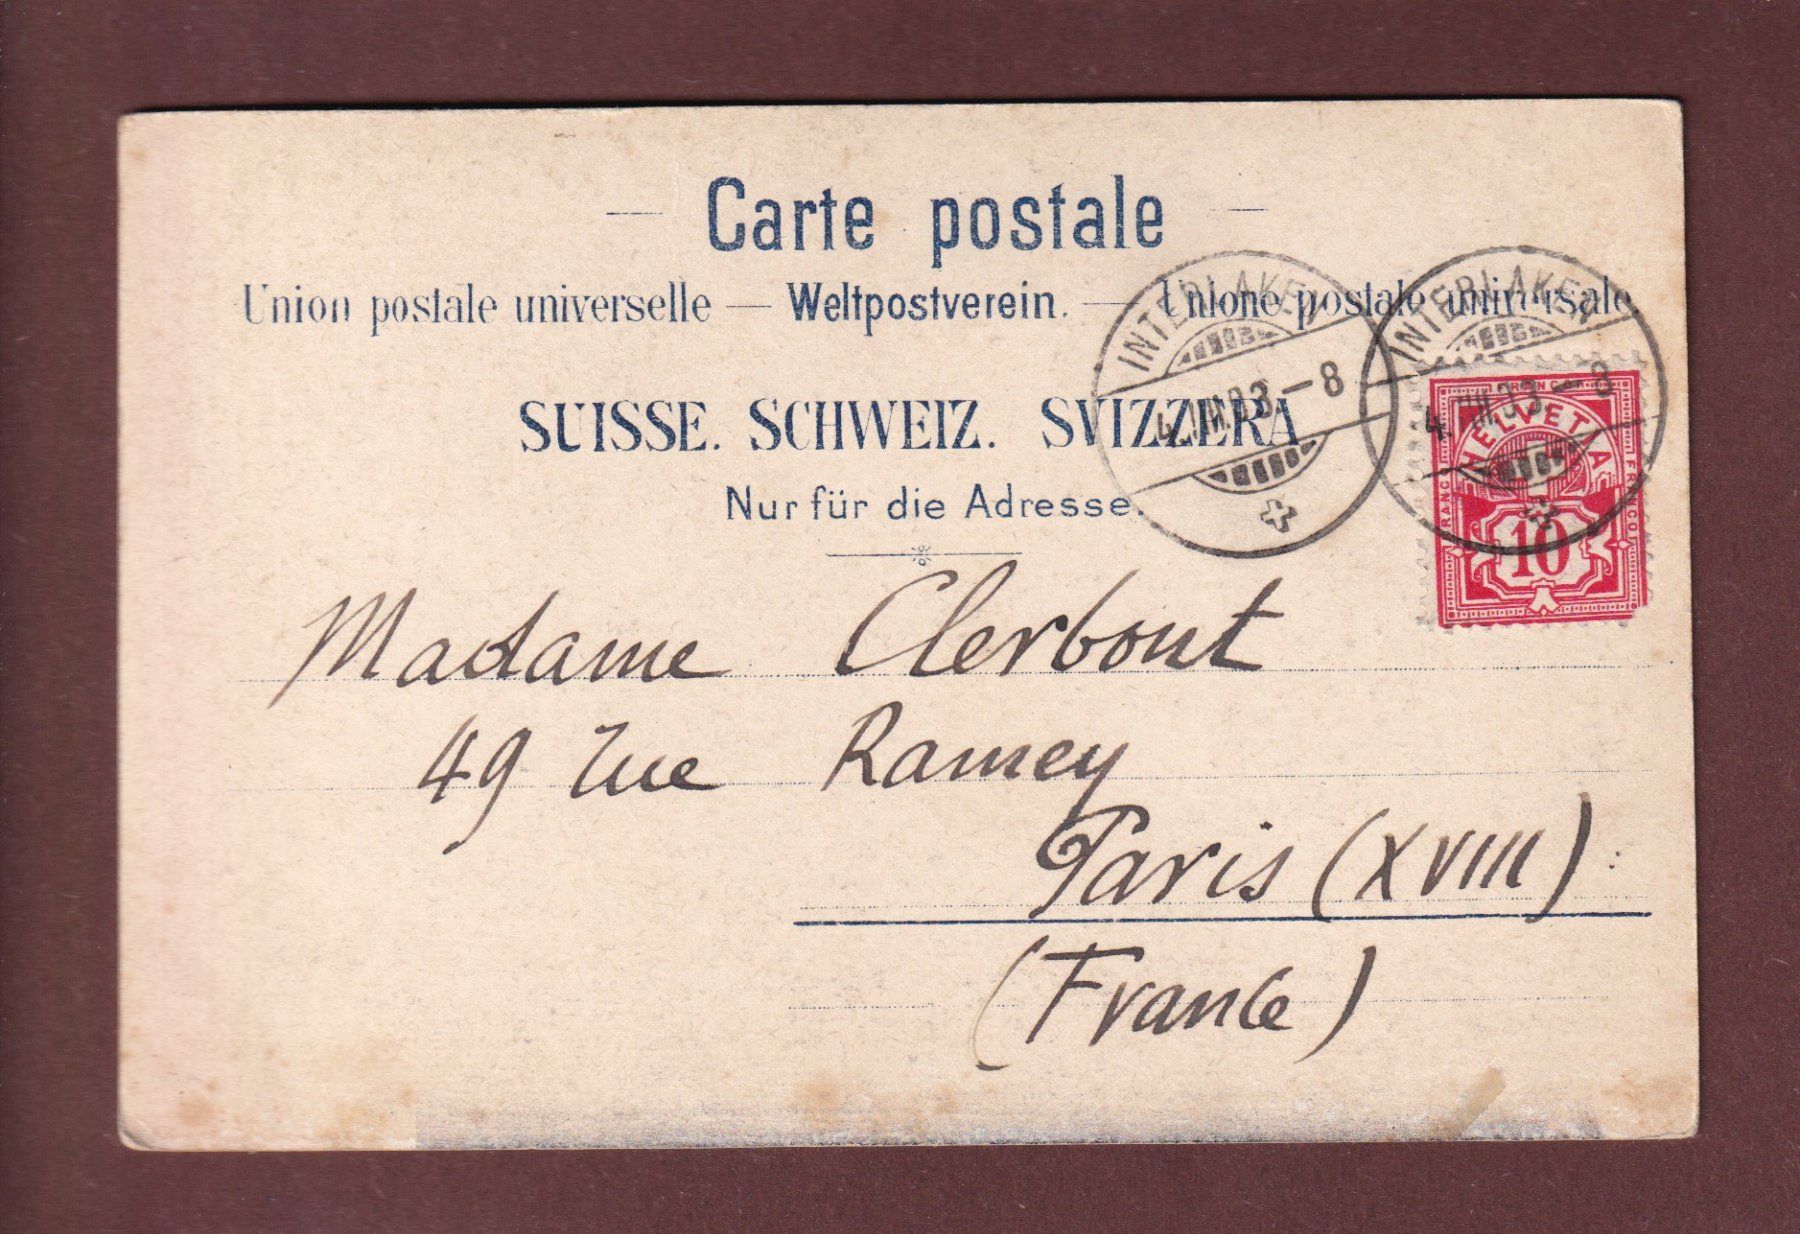 Carte postale
Union postale universelle — Weltpostverein. — Unione postale universale.
SUISSE. SCHWEIZ. SVIZZERA
Nur für die Adresse.
INTERLAKEN
–8
INTERLAKEN
–8
HELVETIA
FRANCO
FRANCO
FRANCO
10
Madame Clerbout
49 rue Ramey
Paris (XVIII)
(France)